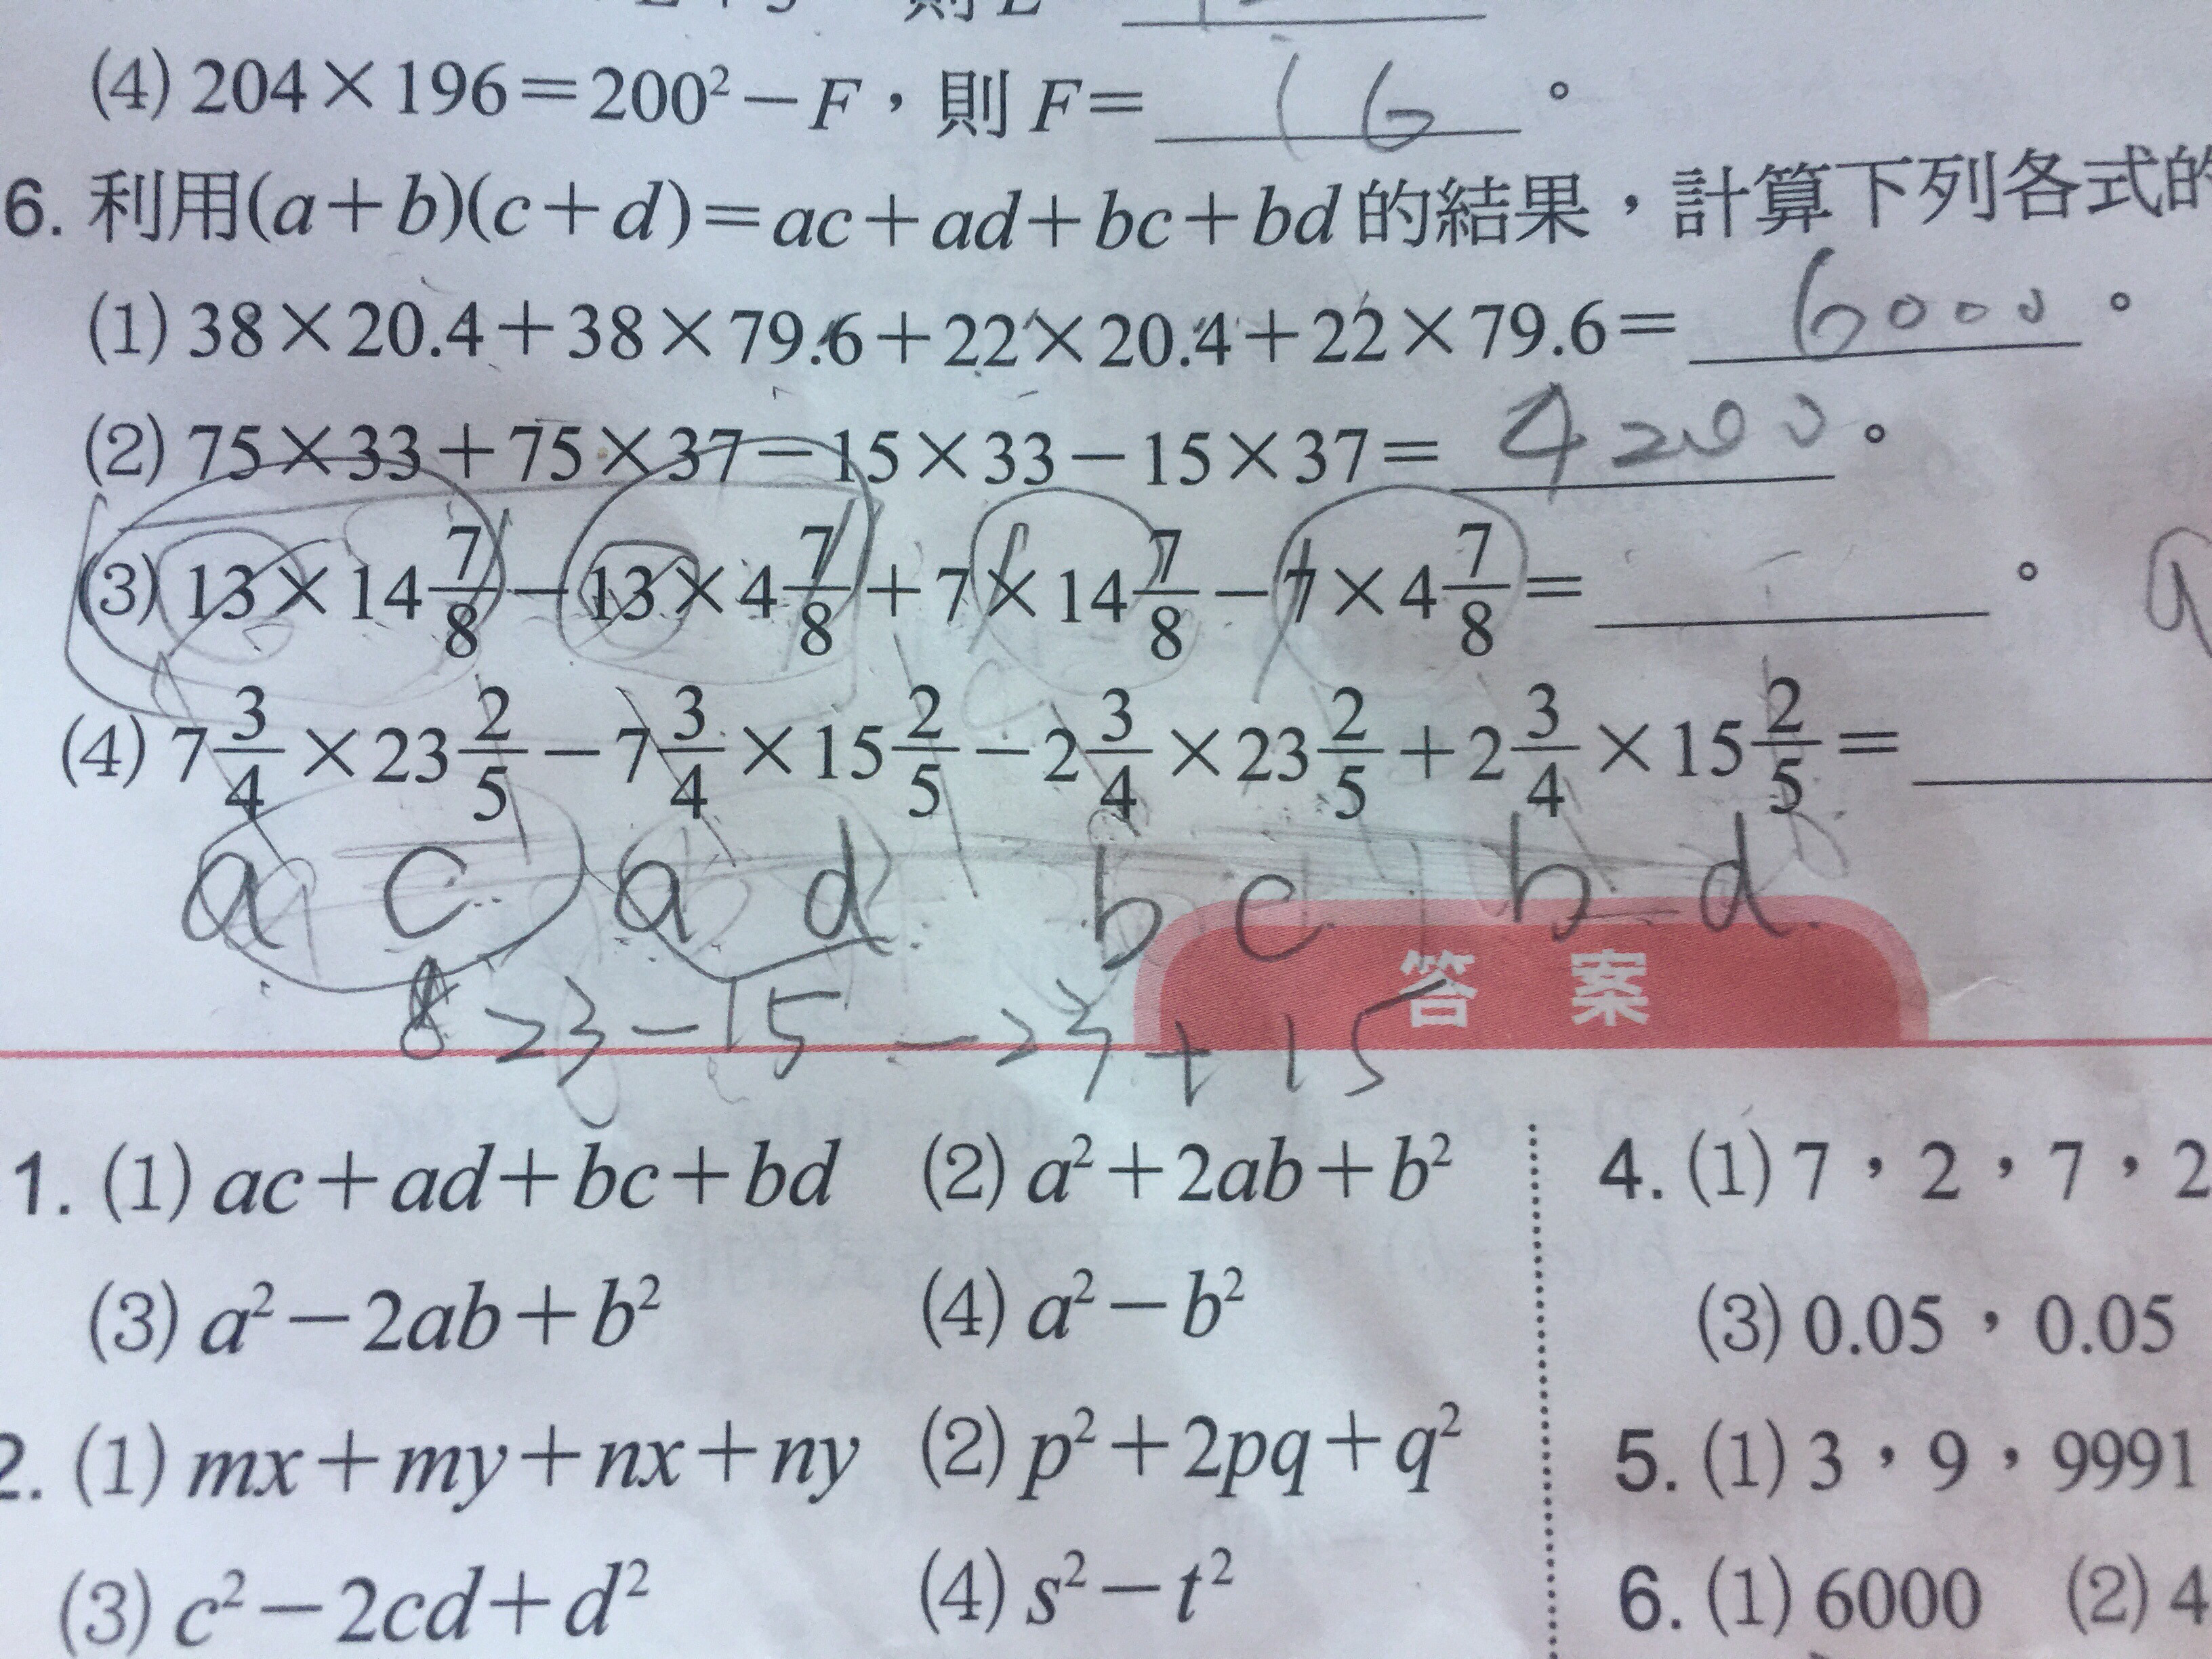 (4) 204×196=200²－F，則 F= 16 。
6. 利用(a+b)(c+d)=ac+ad+bc+bd 的結果，計算下列各式的
(1) 38×20.4+38×79.6+22×20.4+22×79.6= 6000 。
(2) 75×33+75×37－15×33－15×37= 4200 。
(3) 13×14 7/8－13×4 7/8+7×14 7/8－7×4 7/8= 。
(4) 7 3/4×23 2/5－7 3/4×15 2/5－2 3/4×23 2/5+2 3/4×15 2/5=
a c a d b c b d
8 23－15－23+15
答 案
1. (1) ac+ad+bc+bd (2) a²+2ab+b²
(3) a²－2ab+b² (4) a²－b²
2. (1) mx+my+nx+ny (2) p²+2pq+q²
(3) c²－2cd+d² (4) s²－t²
4. (1) 7，2，7，2
(3) 0.05，0.05
5. (1) 3，9，9991
6. (1) 6000 (2) 4